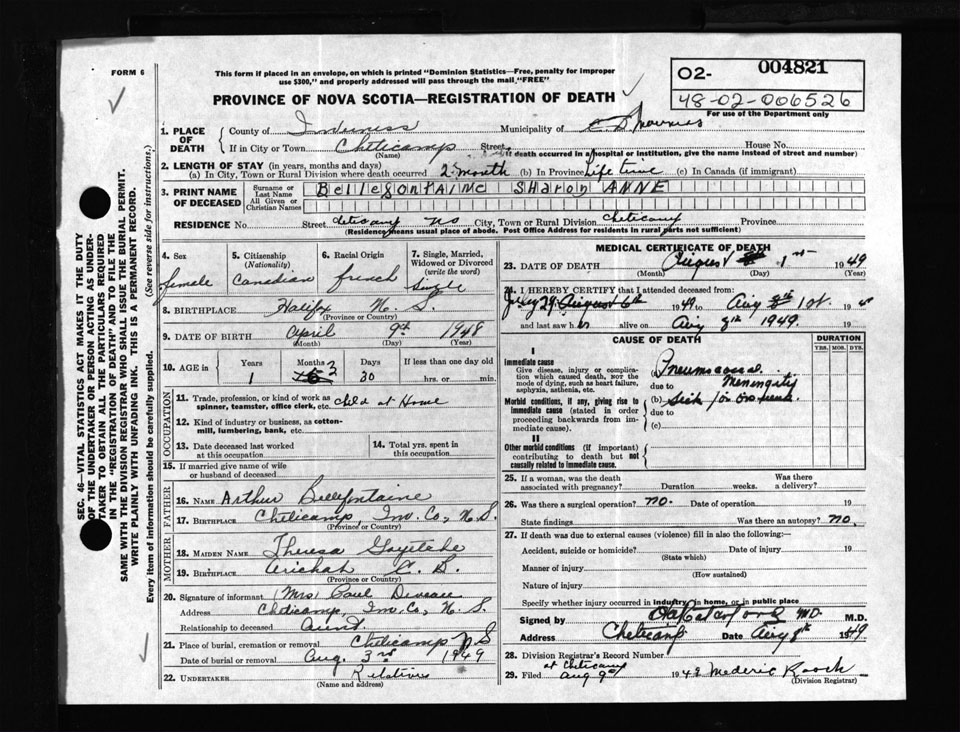 FORM 6
This form if placed in an envelope, on which is printed "Dominion Statistics—Free, penalty for improper
use $300," and properly addressed will pass through the mail "FREE"
PROVINCE OF NOVA SCOTIA—REGISTRATION OF DEATH
02- 004821
48-02-006526
For use of the Department only
SEC. 46—VITAL STATISTICS ACT MAKES IT THE DUTY
OF THE UNDERTAKER OR PERSON ACTING AS UNDER-
TAKER TO OBTAIN ALL THE PARTICULARS REQUIRED
IN THE "REGISTRATION OF DEATH" AND TO FILE THE
SAME WITH THE DIVISION REGISTRAR WHO SHALL ISSUE THE BURIAL PERMIT.
WRITE PLAINLY WITH UNFADING INK. THIS IS A PERMANENT RECORD.
Every item of information should be carefully supplied. (See reverse side for instructions.)
1. PLACE OF DEATH
County of Inverness Municipality of
If in City or Town Cheticamp Street House No.
(Name) If death occurred in a hospital or institution, give the name instead of street and number)
2. LENGTH OF STAY (in years, months and days)
(a) In City, Town or Rural Division where death occurred 2 month (b) In Province life time (c) In Canada (if immigrant)
3. PRINT NAME OF DECEASED
Surname or Last Name
All Given or Christian Names
Bellefontaine Sharon ANNE
RESIDENCE No. Street cheticamp NS City, Town or Rural Division Cheticamp Province
(Residence means usual place of abode. Post Office Address for residents in rural parts not sufficient)
4. Sex
female
5. Citizenship (Nationality)
Canadian
6. Racial Origin
french
7. Single, Married, Widowed or Divorced (write the word)
Single
8. BIRTHPLACE Halifax N. S.
(Province or Country)
9. DATE OF BIRTH April 9th 1948
(Month) (Day) (Year)
10. AGE in Years Months Days If less than one day old
1 3 30 hrs. or min.
OCCUPATION
11. Trade, profession, or kind of work as
spinner, teamster, office clerk, etc. child at Home
12. Kind of industry or business, as cotton-
mill, lumbering, bank, etc.
13. Date deceased last worked
at this occupation
14. Total yrs. spent in
this occupation
15. If married give name of wife
or husband of deceased
FATHER
16. NAME Arthur Bellefontaine
17. BIRTHPLACE Cheticamp, Inv. Co, N. S.
(Province or Country)
MOTHER
18. MAIDEN NAME Theresa Goyetche
19. BIRTHPLACE Arichat C. B.
(Province or Country)
20. Signature of informant (Mrs) Paul Deveau
Address Cheticamp, Inv. Co, N. S.
Relationship to deceased aunt.
21. Place of burial, cremation or removal Cheticamp N S
Date of burial or removal Aug. 3rd 1949
22. UNDERTAKER Relatives
(Name and address)
MEDICAL CERTIFICATE OF DEATH
23. DATE OF DEATH August 1st 1949
(Month) (Day) (Year)
24. I HEREBY CERTIFY that I attended deceased from:
July 29, August 6th 1949 to Aug 1st. 19
and last saw her alive on Aug 8th 1949. 19
CAUSE OF DEATH
DURATION
YRS. MOS. DYS.
I
Immediate cause
Give disease, injury or complica-
tion which caused death, not the
mode of dying, such as heart failure,
asphyxia, asthenia, etc.
Pneumococcal
due to Meningitis
Morbid conditions, if any, giving rise to
immediate cause (stated in order
proceeding backwards from im-
mediate cause).
(b) Sick for one week.
due to
(c)
II
Other morbid conditions (if important)
contributing to death but not
causally related to immediate cause.
25. If a woman, was the death
associated with pregnancy? Duration weeks. Was there
a delivery?
26. Was there a surgical operation? no. Date of operation. 19
State findings Was there an autopsy? no.
27. If death was due to external causes (violence) fill in also the following:—
Accident, suicide or homicide? Date of injury 19
(State which)
Manner of injury
(How sustained)
Nature of injury
Specify whether injury occurred in industry, in home, or in public place
Signed by MD. M.D.
Address Cheticamp Date Aug 8th 1949
28. Division Registrar's Record Number
at Cheticamp
29. Filed Aug 9th 1949 Mederic Roach
(Division Registrar)